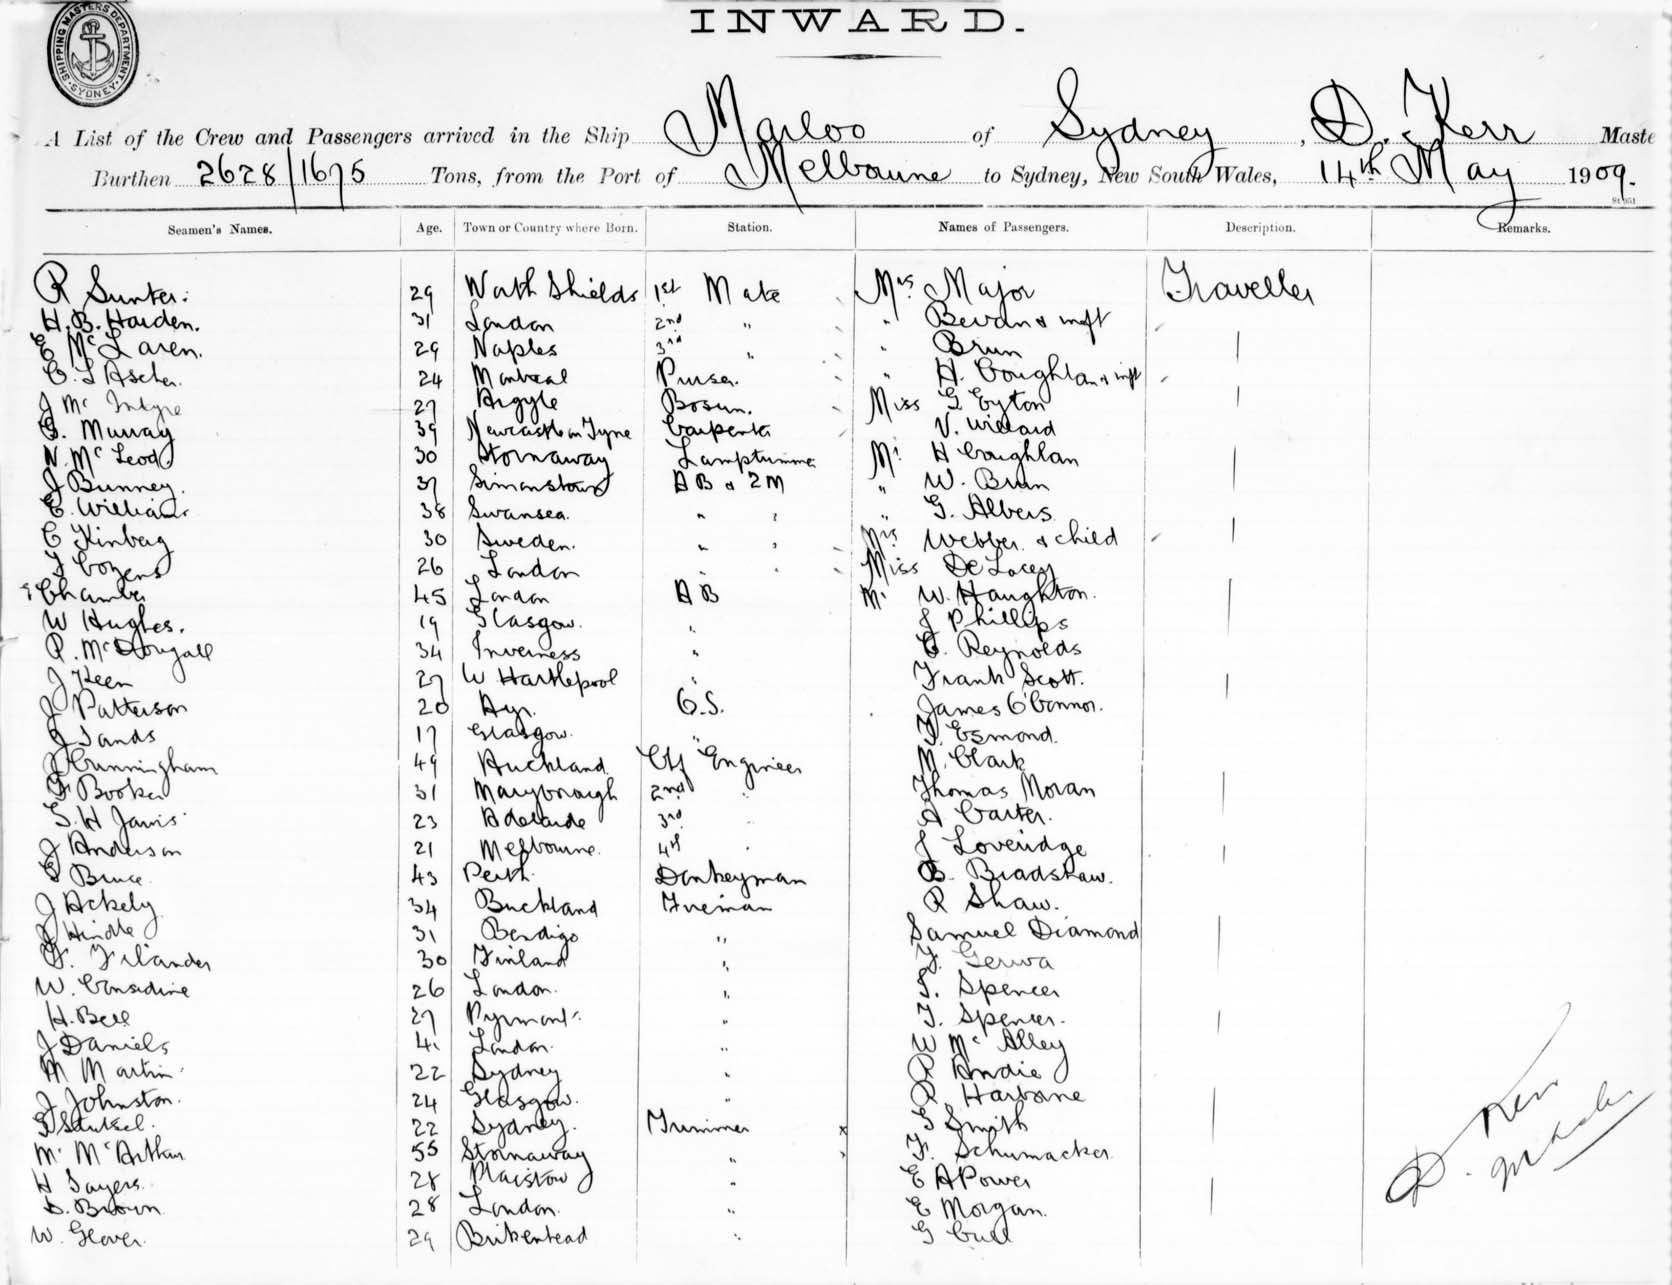 SHIPPING MASTERS DEPARTMENT
SYDNEY
INWARD.
A List of the Crew and Passengers arrived in the Ship Marloo of Sydney, D. Kerr Maste
Burthen 2628/1675 Tons, from the Port of Melbourne to Sydney, New South Wales, 14th May 1909.
Seamen's Names. Age. Town or Country where Born. Station. Names of Passengers. Description. Remarks.
R Sunter. 29 North Shields 1st Mate Mrs Major Traveller
H. B. Harden. 31 London 2nd " " Bevan & inft
McLaren. 29 Naples 3rd " " Brun
C. L Ascher. 24 Montreal Purser. " H. Coughlan & inft
J McIntyre 27 Argyle Bosun. Miss G Eyton
G. Murray 39 Newcastle on Tyne Carpenter V. Willard
N. McLeod. 30 Stornaway Lamptrimmer Mr H Coughlan
J Bunney. 37 Simonstown AB & 2M " W. Brun
E. Williams 38 Swansea. " " " G. Albers
C Kinberg 30 Sweden. " " Mrs Webber & child
T Cozens 26 London " " Miss De Lacey
Chamber 45 London AB Mr W. Haughton.
W Hughes. 19 Glasgow. " J Phillips
R. McDougall 34 Inverness " C. Reynolds
J Keen 27 W Hartlepool " Frank Scott.
J Patterson 20 Ayr. O.S. James O'Connor.
J Sands 17 Glasgow. " Esmond.
J Cunningham 49 Auckland Chf Engineer M. Clark
F Booker 31 Maryborough 2nd " Thomas Moran
S. H Jarvis 23 Adelaide 3rd " A Carter.
J Anderson 21 Melbourne. 4th " J Loveridge
G Bruce 43 Perth. Donkeyman B. Bradshaw.
J Ackely 34 Buckland Fireman R Shaw.
J Hindle 31 Bendigo " Samuel Diamond
F. Filander 30 Finland " Gerwa
W. Considine 26 London. " S. Spencer
H. Bell 27 Pyrmont. " T. Spencer.
J Daniels 41 London. " W McAlley
M Martin 22 Sydney " R Andie
J Johnston. 24 Glasgow. " R Harbone
22 Sydney. Trimmer x G Smith
M. McArthur 55 Stornaway " F. Schumacker
H Sayers. 28 Plaistow " E A Power
D. Brown. 28 London. " E Morgan.
W. Glover. 29 Birkenhead " G Cull
D. Kerr
Master